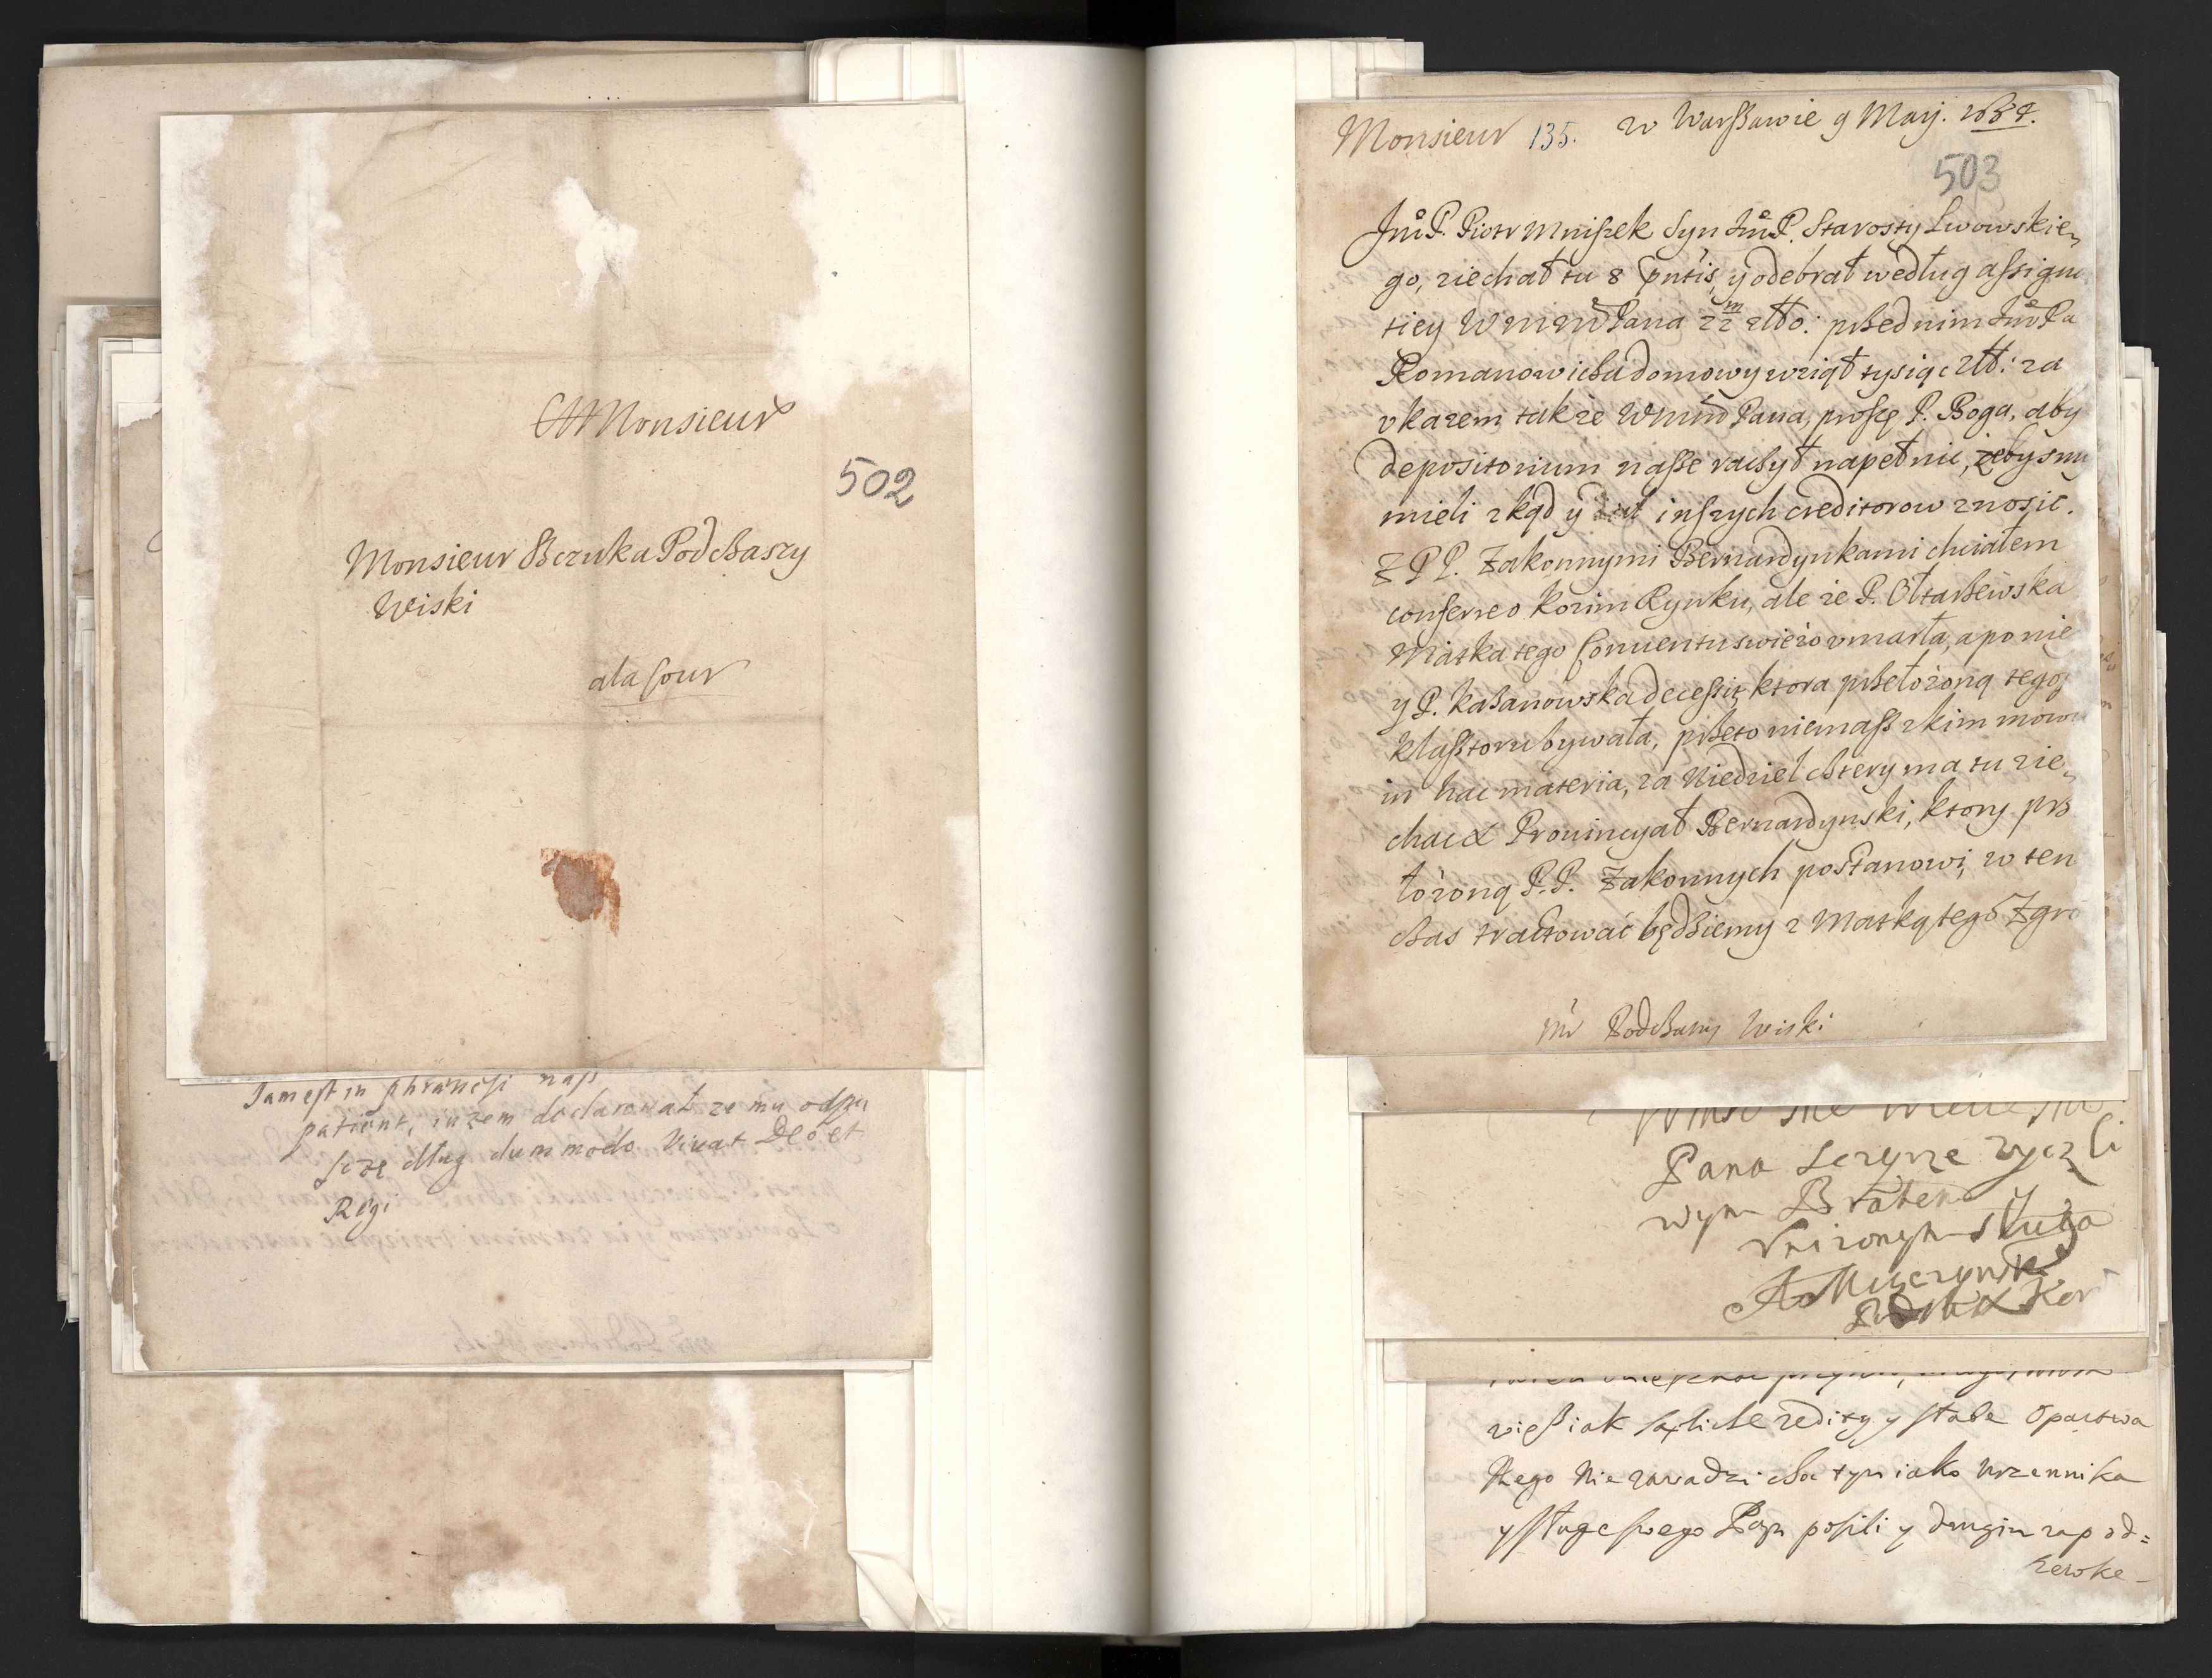 A Monsieur
502
Monsieur Szczuka Podczaszy
Wiski
a la Cour
Jam est in phrenesi
patient, iużem declarował ze mu odpu
szczę dług dummodo vivat Deo et
Regi
Monsieur 135. w Warszawie 9 Maij. 1684.
503
JmP. Piotr Mniszek Syn JmP. Starosty Lwowskie„
go, ziechał tu 8 pntis, y odebrał według assigna
tiey WMM Pana 22 m zło: przed nim Jm Pa
Romanowicza domowy wziął tysiąc zł: za
vkazem także WMM Pana, proszę P. Boga, aby
depositorium nasze raczył napełnic, żebysmy
mieli zkąd y inszych creditorow znosić.
Z PP. Zakonnymi Bernardynkami chciałem
conferre o Kozim Rynku, ale że P. Ołtarzewska
Matka tego Conuentu swieżo vmarła, a po nie
y P. Kazanowska decessit, ktora przełożoną tego
klasztoru bywała, przeto niemasz zkim mowi
in hac materia, za Niedziel cztery ma tu zie„
chac X Prouincyał Bernardynski, ktory prze
łożoną P.P. Zakonnych postanowi, w ten
czas tractować będziemy z Matką tego Zgro
Mr Podczaszy Wiski
Pana szczyrze życzli
wym Bratem y
vniżonym sługą
y stabe oparstwa
Nego nie zawadzi choc tym iako urzennika
y sługę swego posili y drugim zapod=